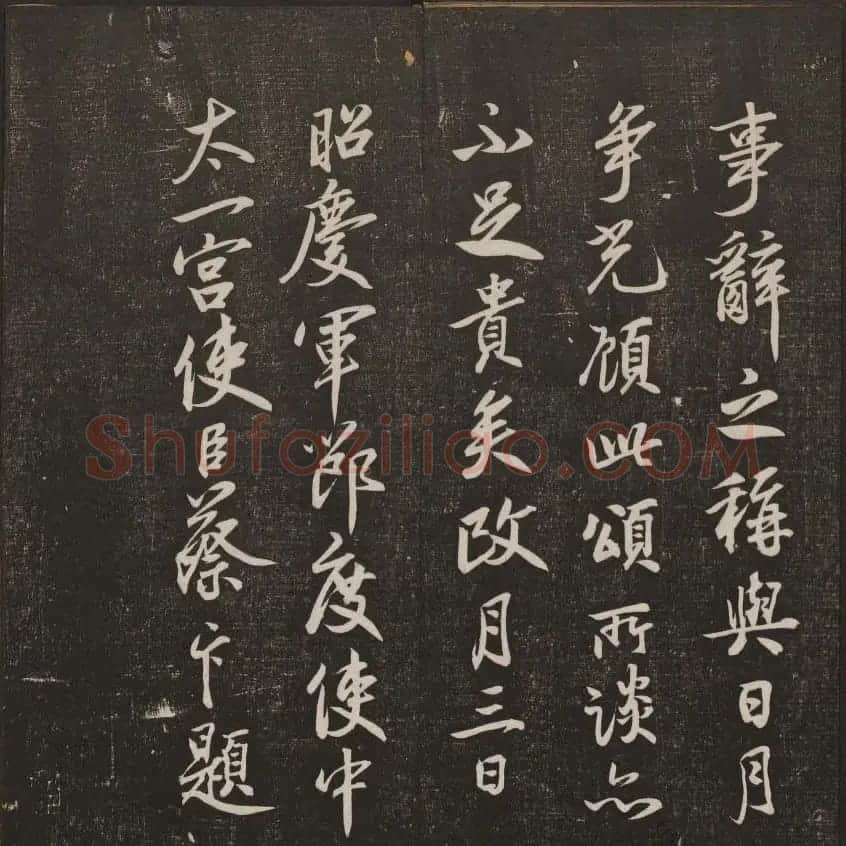 事辭之稱與日月
爭光顧此頌所談亦
不足貴矣政月三日
昭慶軍節度使中
太一宮使臣蔡卞題
Shufaziliao.COM